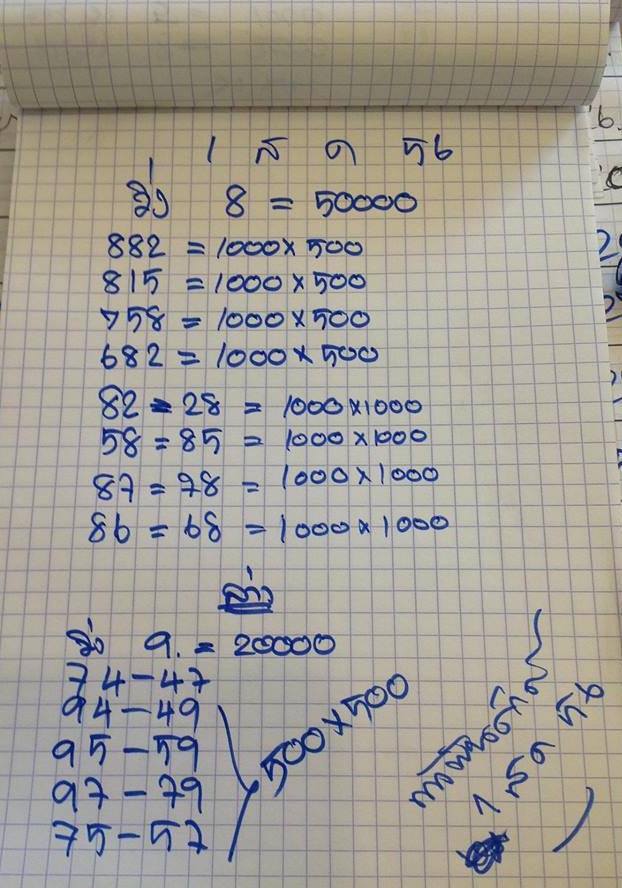 1 ส ค 56
วิ่ง 8 = 50000
882 = 1000 x 500
815 = 1000 x 500
758 = 1000 x 500
682 = 1000 x 500
82 = 28 = 1000 x 1000
58 = 85 = 1000 x 1000
87 = 78 = 1000 x 1000
86 = 68 = 1000 x 1000
ล่าง
วิ่ง 9. = 20000
74 - 47
94 - 49
95 - 59
97 - 79
75 - 57
500 x 500
1 สค 56